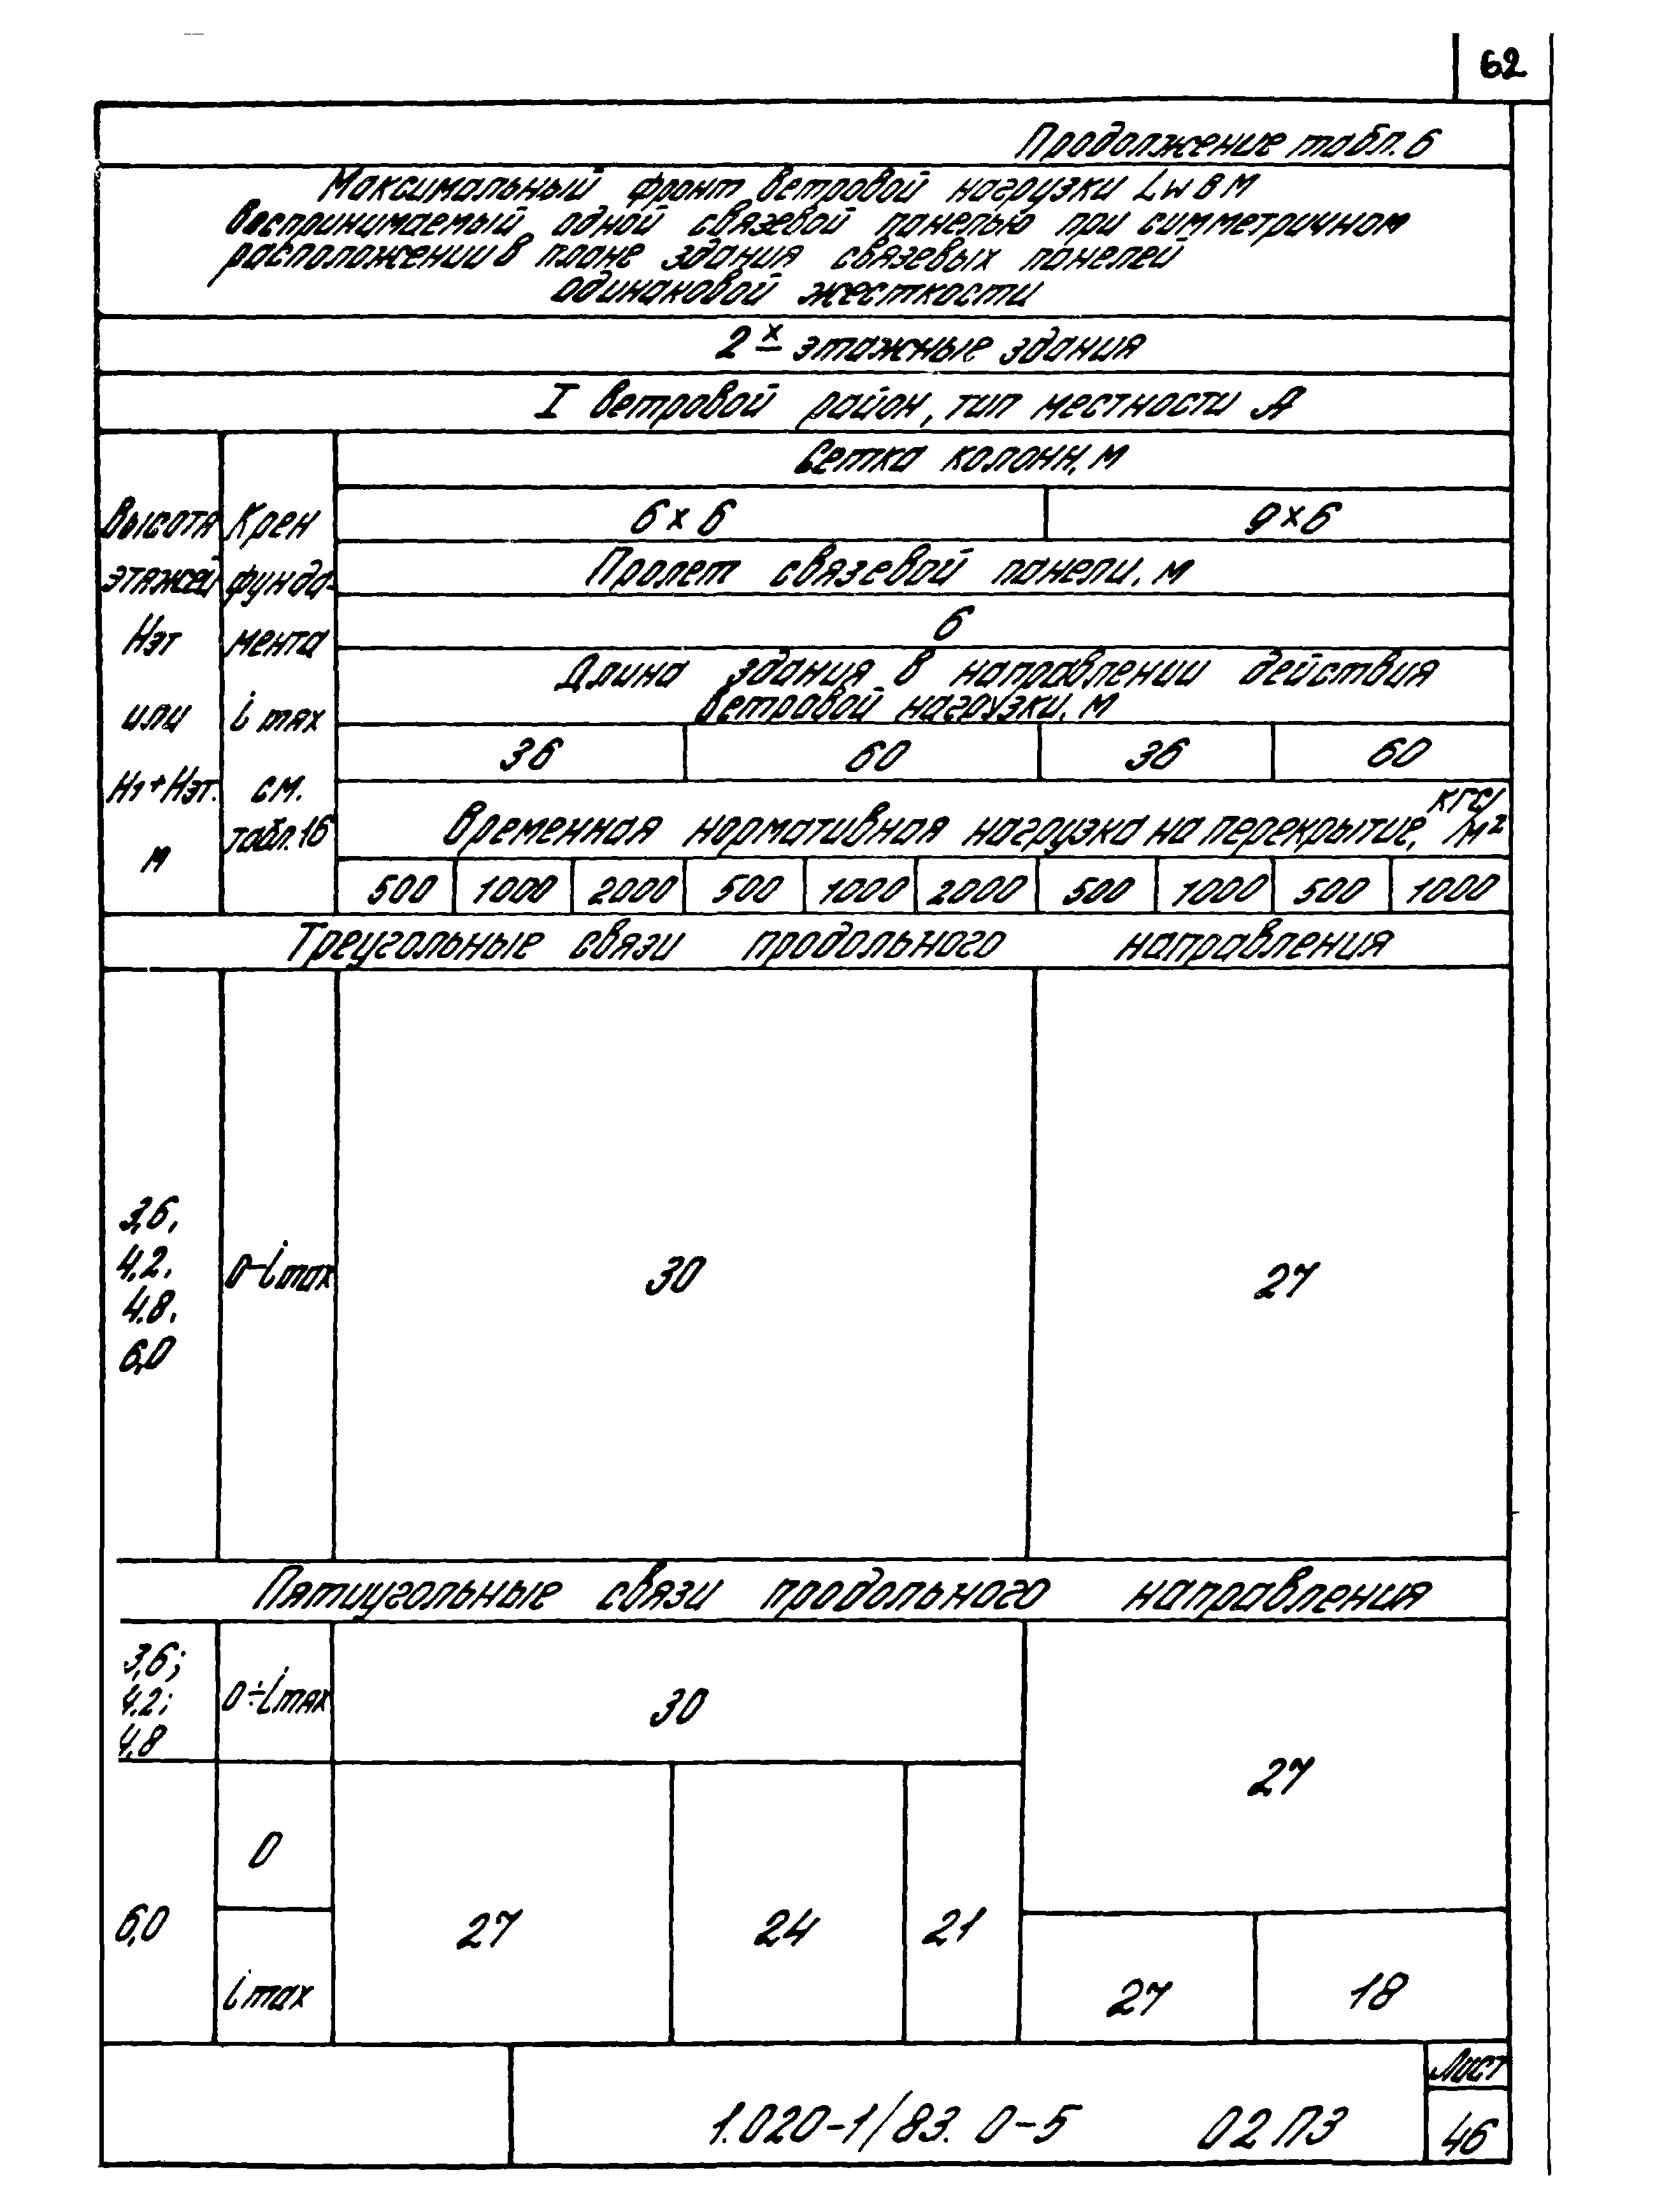 62
Продолжение табл. 6
Максимальный фронт ветровой нагрузки Lw в м
воспринимаемый одной связевой панелью при симметричном
расположении в плане здания связевых панелей
одинаковой жесткости
2х этажные здания
I ветровой район, тип местности А
Сетка колонн, м
Высота Крен 6 х 6 9 х 6
этажей фунда- Пролет связевой панели, м
Нэт мента 6
Длина здания в направлении действия
или i max ветровой нагрузки, м
36 60 36 60
Н1+Нэт. см.
м табл. 16 Временная нормативная нагрузка на перекрытие, кгс/м²
500 1000 2000 500 1000 2000 500 1000 500 1000
Треугольные связи продольного направления
3,6,
4.2.
4.8.
6,0
0-imax 30 27
Пятиугольные связи продольного направления
3,6;
4.2;
4,8
0÷imax 30
27
0
6,0 27 24 21
imax 27 18
Лист
1.020-1/83. 0-5 02 ПЗ 46